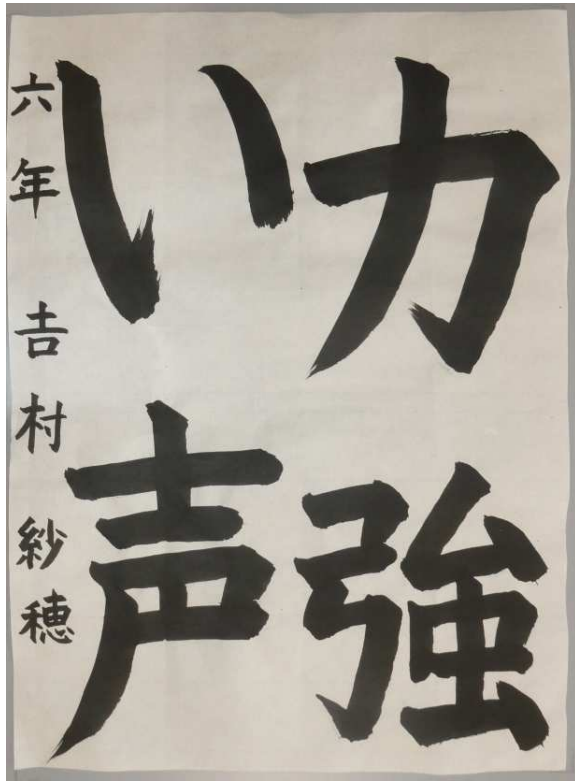 力強
い声
六年 𠮷村紗穂